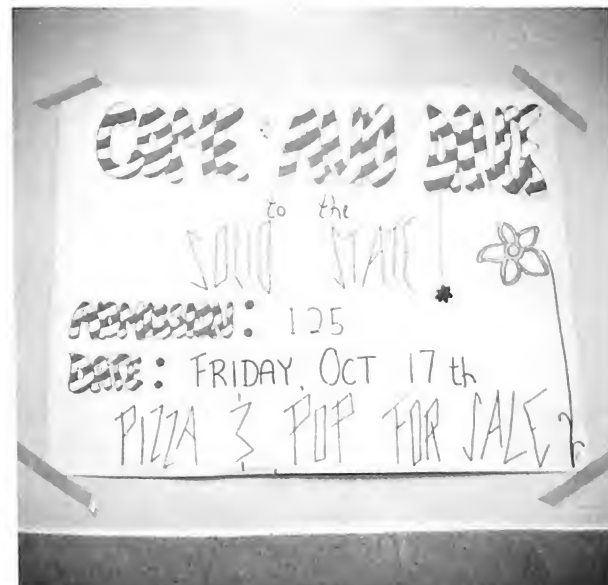 COME AND DANCE
to the
SOLID STATE
ADMISSION: 125
DATE: FRIDAY, OCT 17th
PIZZA & POP FOR SALE